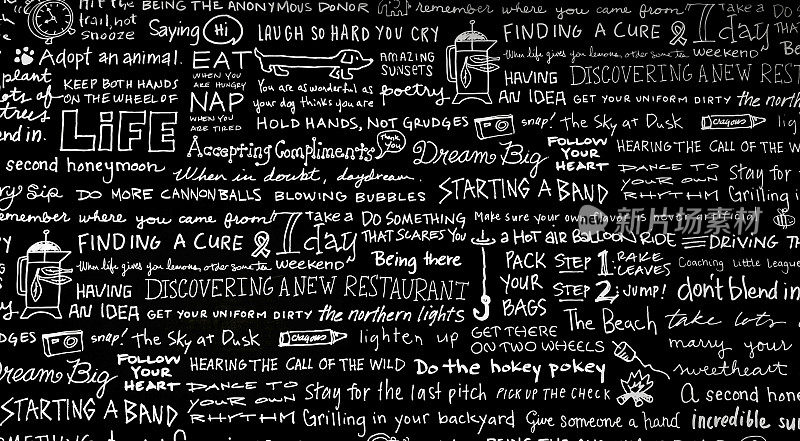 Hit the BEING THE ANONYMOUS DONOR remember where you came from Take a DO SOMETHING
trail, not snooze Saying Hi LAUGH SO HARD YOU CRY FINDING A CURE 7 day weekend THAT
Adopt an animal. EAT WHEN YOU ARE HUNGRY AMAZING SUNSETS When life gives you lemons, order some tea Being
plant lots of trees KEEP BOTH HANDS ON THE WHEEL OF LiFE NAP WHEN YOU ARE TIRED You are as wonderful as your dog thinks you are poetry HAVING AN IDEA DISCOVERING A NEW REST
GET YOUR UNIFORM DIRTY the northern
blend in. HOLD HANDS, NOT GRUDGES snap! the Sky at Dusk crayons
Accepting Compliments Thank you Dream Big FOLLOW YOUR HEART HEARING THE CALL OF THE WILD
second honeymoon When in doubt, daydream. DANCE TO YOUR OWN RHYTHM Stay for
Sip DO MORE CANNONBALLS BLOWING BUBBLES STARTING A BAND Grilling in
remember where you came from Take a 7 day weekend DO SOMETHING THAT SCARES YOU Make sure your own flavor never artificial
FINDING A CURE a HOT AIR BALLOON RIDE DRIVING TH
When life gives you lemons, order some tea Being there PACK YOUR BAGS STEP 1: RAKE LEAVES Coaching Little League
HAVING AN IDEA DISCOVERING A NEW RESTAURANT STEP 2: JUMP! don't blend in
GET YOUR UNIFORM DIRTY the northern lights The Beach take lots
DGES snap! the Sky at Dusk crayons lighten up GET THERE ON TWO WHEELS marry your sweetheart
Dream Big FOLLOW YOUR HEART HEARING THE CALL OF THE WILD Do the hokey pokey
DANCE TO YOUR OWN RHYTHM Stay for the last pitch PICK UP THE CHECK A second hone
STARTING A BAND Grilling in your backyard Give someone a hand incredible su
新片场素材